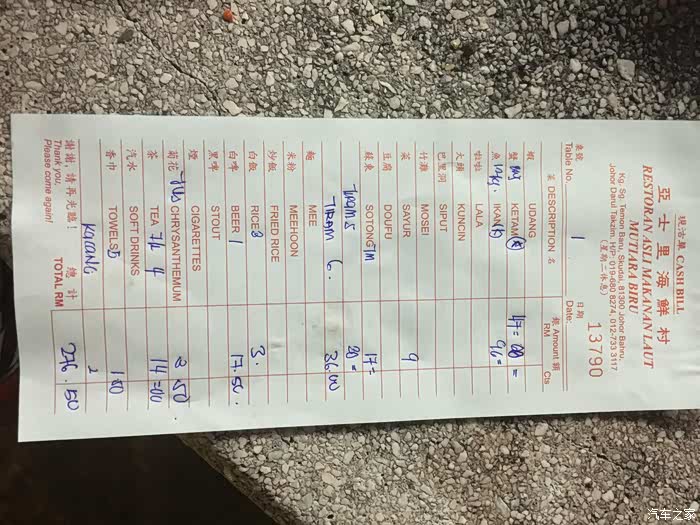 現沽單 CASH BILL
亞士里海鮮村
RESTORAN ASLI MAKANAN LAUT
MUTIARA BIRU
Kg. Sg. Temon Baru, Skudai, 81300 Johor Bahru,
Johor Darul Takzim. H/P: 019-680 8274, 012-733 3117
(星期二休息)
13790
桌號 日期
Table No. 1 Date:
菜 DESCRIPTION 名 銀 Amount 額
RM Cts
蝦 UDANG
蟹 KETAM 47=00=
魚 1 IKAN 96=
啦啦 LALA
大頭 KUNCIN
巴里洞 SIPUT
竹蟶 MOSEI
菜 SAYUR 9
豆腐 DOUFU
蘇東 SOTONG 17=
5 20=
6. 36.00
麵 MEE
米粉 MEEHOON
炒飯 FRIED RICE
白飯 RICE 3 3.
白啤 BEER 1 17.50.
黑啤 STOUT
煙 CIGARETTES
菊花 CHRYSANTHEMUM 2.50
茶 TEA 4 14=00
汽水 SOFT DRINKS
香巾 TOWELS 5 1.50
KACANG 2
謝謝，請再光臨！ 總計
Thank you, TOTAL RM 276.50
Please come again!
汽车之家